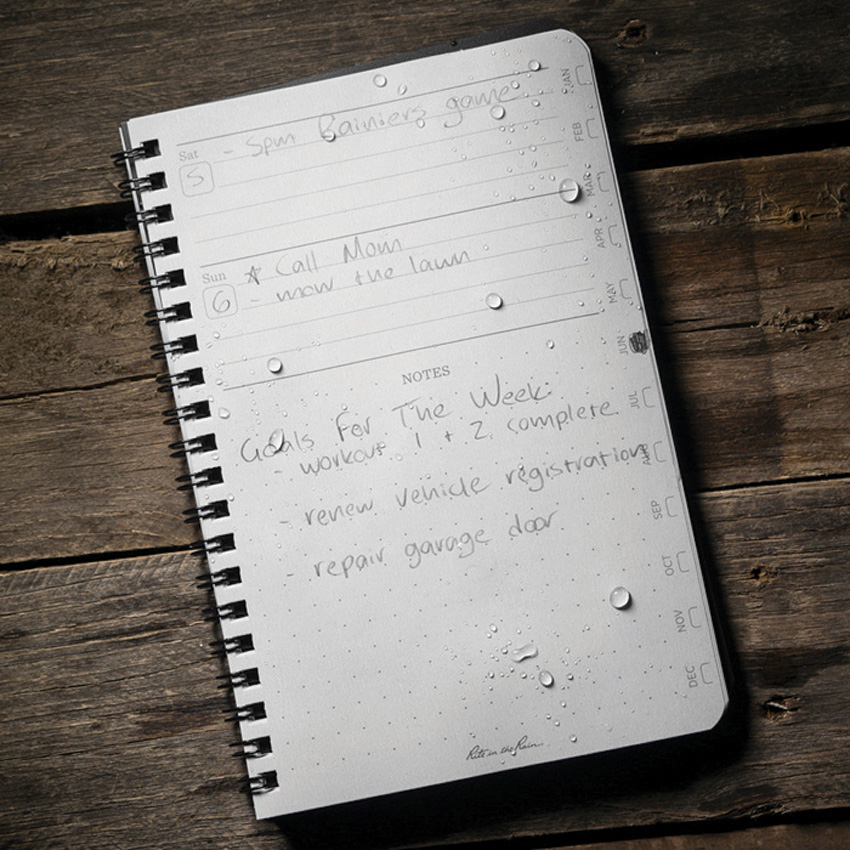 JAN
Sat - 5pm Rainiers game
5
FEB
MAR
APR
Sun * Call Mom
6 - mow the lawn
MAY
JUN
NOTES
JUL
Goals For The Week:
- workout 1 + 2 complete
AUG
- renew vehicle registration
SEP
- repair garage door
OCT
NOV
DEC
Rite in the Rain